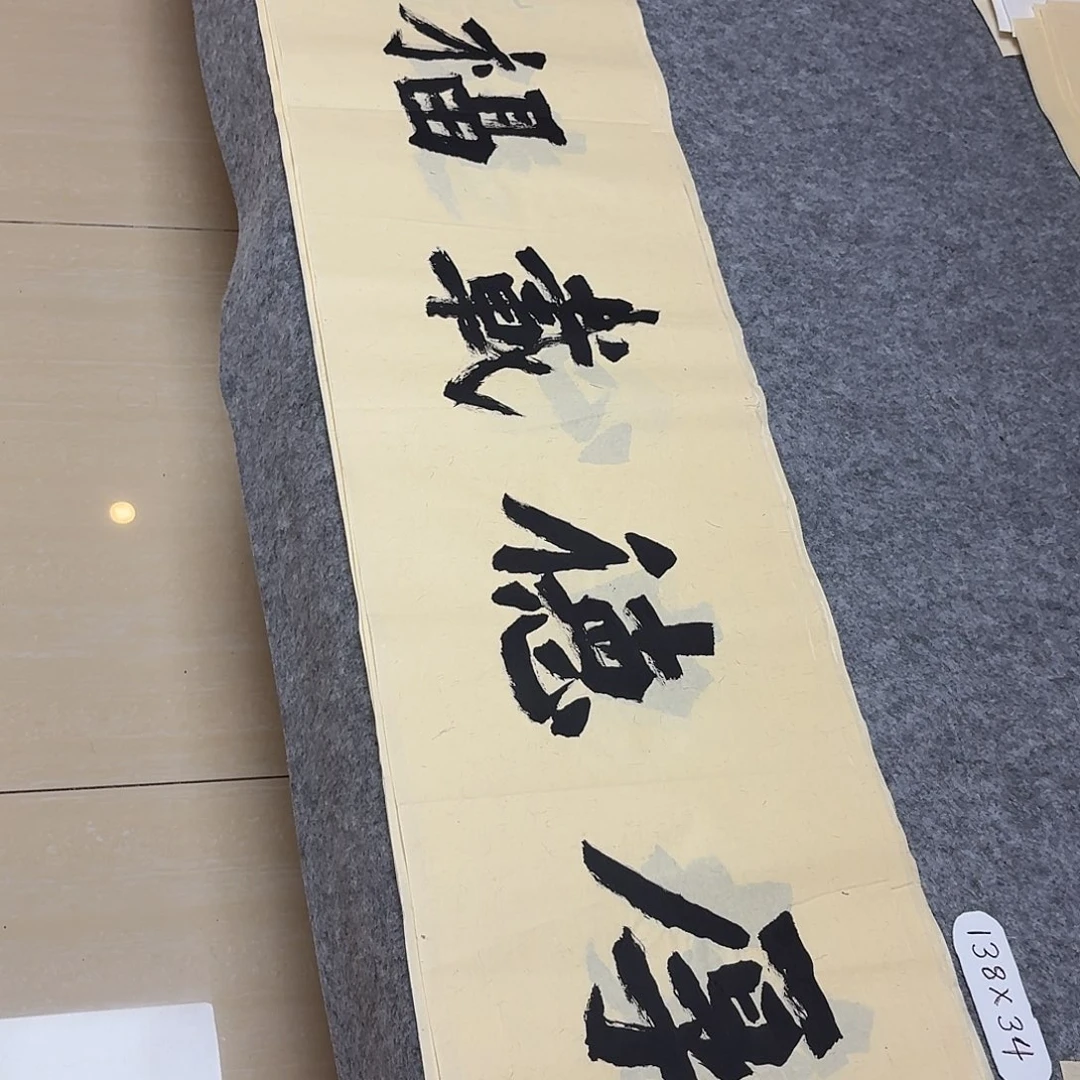 厚德載福
138X34